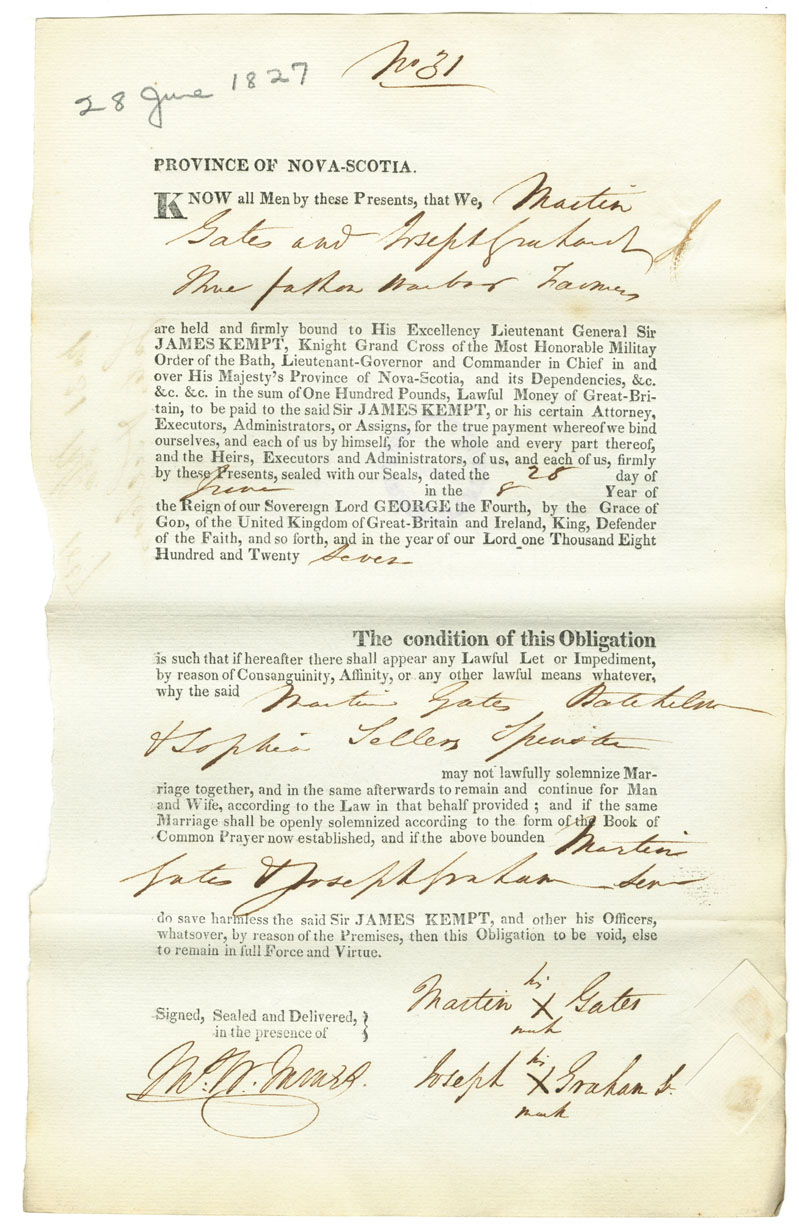 No 31
28 June 1827
PROVINCE OF NOVA-SCOTIA.
KNOW all Men by these Presents, that We, Martin
Gates and Joseph Grahard
Three fathom Harbor Farmers
are held and firmly bound to His Excellency Lieutenant General Sir
JAMES KEMPT, Knight Grand Cross of the Most Honorable Militay
Order of the Bath, Lieutenant-Governor and Commander in Chief in and
over His Majesty's Province of Nova-Scotia, and its Dependencies, &c.
&c. &c. in the sum of One Hundred Pounds, Lawful Money of Great-Bri-
tain, to be paid to the said Sir JAMES KEMPT, or his certain Attorney,
Executors, Administrators, or Assigns, for the true payment whereof we bind
ourselves, and each of us by himself, for the whole and every part thereof,
and the Heirs, Executors and Administrators, of us, and each of us, firmly
by these Presents, sealed with our Seals, dated the 28 day of
June in the 8 Year of
the Reign of our Sovereign Lord GEORGE the Fourth, by the Grace of
GOD, of the United Kingdom of Great-Britain and Ireland, King, Defender
of the Faith, and so forth, and in the year of our Lord one Thousand Eight
Hundred and Twenty Seven
The condition of this Obligation
is such that if hereafter there shall appear any Lawful Let or Impediment,
by reason of Consanguinity, Affinity, or any other lawful means whatever,
why the said Martin Gates Batchelor
& Sophia Sellers Spinster
may not lawfully solemnize Mar-
riage together, and in the same afterwards to remain and continue for Man
and Wife, according to the Law in that behalf provided ; and if the same
Marriage shall be openly solemnized according to the form of the Book of
Common Prayer now established, and if the above bounden Martin
Gates & Joseph Graham Sen
do save harmless the said Sir JAMES KEMPT, and other his Officers,
whatsover, by reason of the Premises, then this Obligation to be void, else
to remain in full Force and Virtue.
Martin his X mark Gates
Signed, Sealed and Delivered, }
in the presence of
Joseph his X mark Graham Sr.